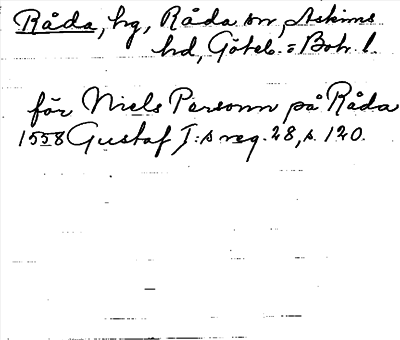 Råda, hg, Råda sn, Askims
hd, Göteb. = Boh. l.
för Niels Personn på Råda
1558 Gustaf I:s reg. 28, s. 120.